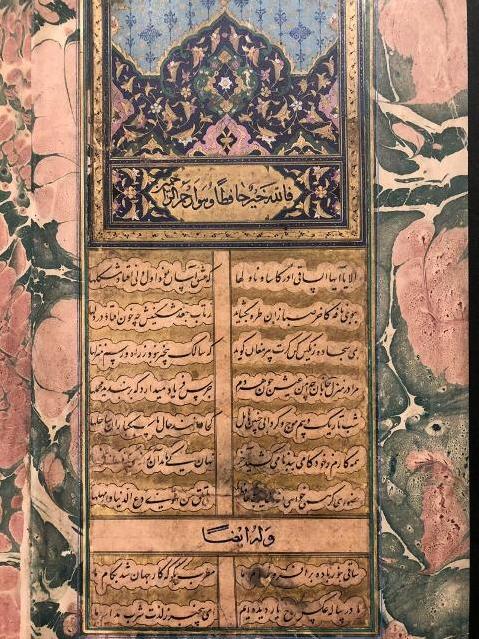 فالله خیر حافظا و هو ارحم الراحمین
الا یا ایها الساقی ادر کاسا و ناولها که عشق آسان نمود اول ولی افتاد مشکلها
ببوی نافه کاخر صبا زان طره بگشاید ز تاب جعد مشکینش چه خون افتاد در دلها
بمی سجاده رنگین کن گرت پیر مغان گوید که سالک بیخبر نبود ز راه و رسم منزلها
مرا در منزل جانان چه امن عیش چون هر دم جرس فریاد میدارد که بربندید محملها
شب تاریک و بیم موج و گردابی چنین هایل کجا دانند حال ما سبکباران ساحلها
همه کارم ز خودکامی ببدنامی کشید آخر نهان کی ماند آن
حضوری گر همی خواهی متی ما تلق من تهوی دع الدنیا و اهملها
وله ایضا
ساقی بنور باده برافروز جام ما مطرب بگو که کار جهان شد بکام ما
ما در پیاله عکس رخ یار دیده ایم ای بیخبر ز لذت شرب مدام ما